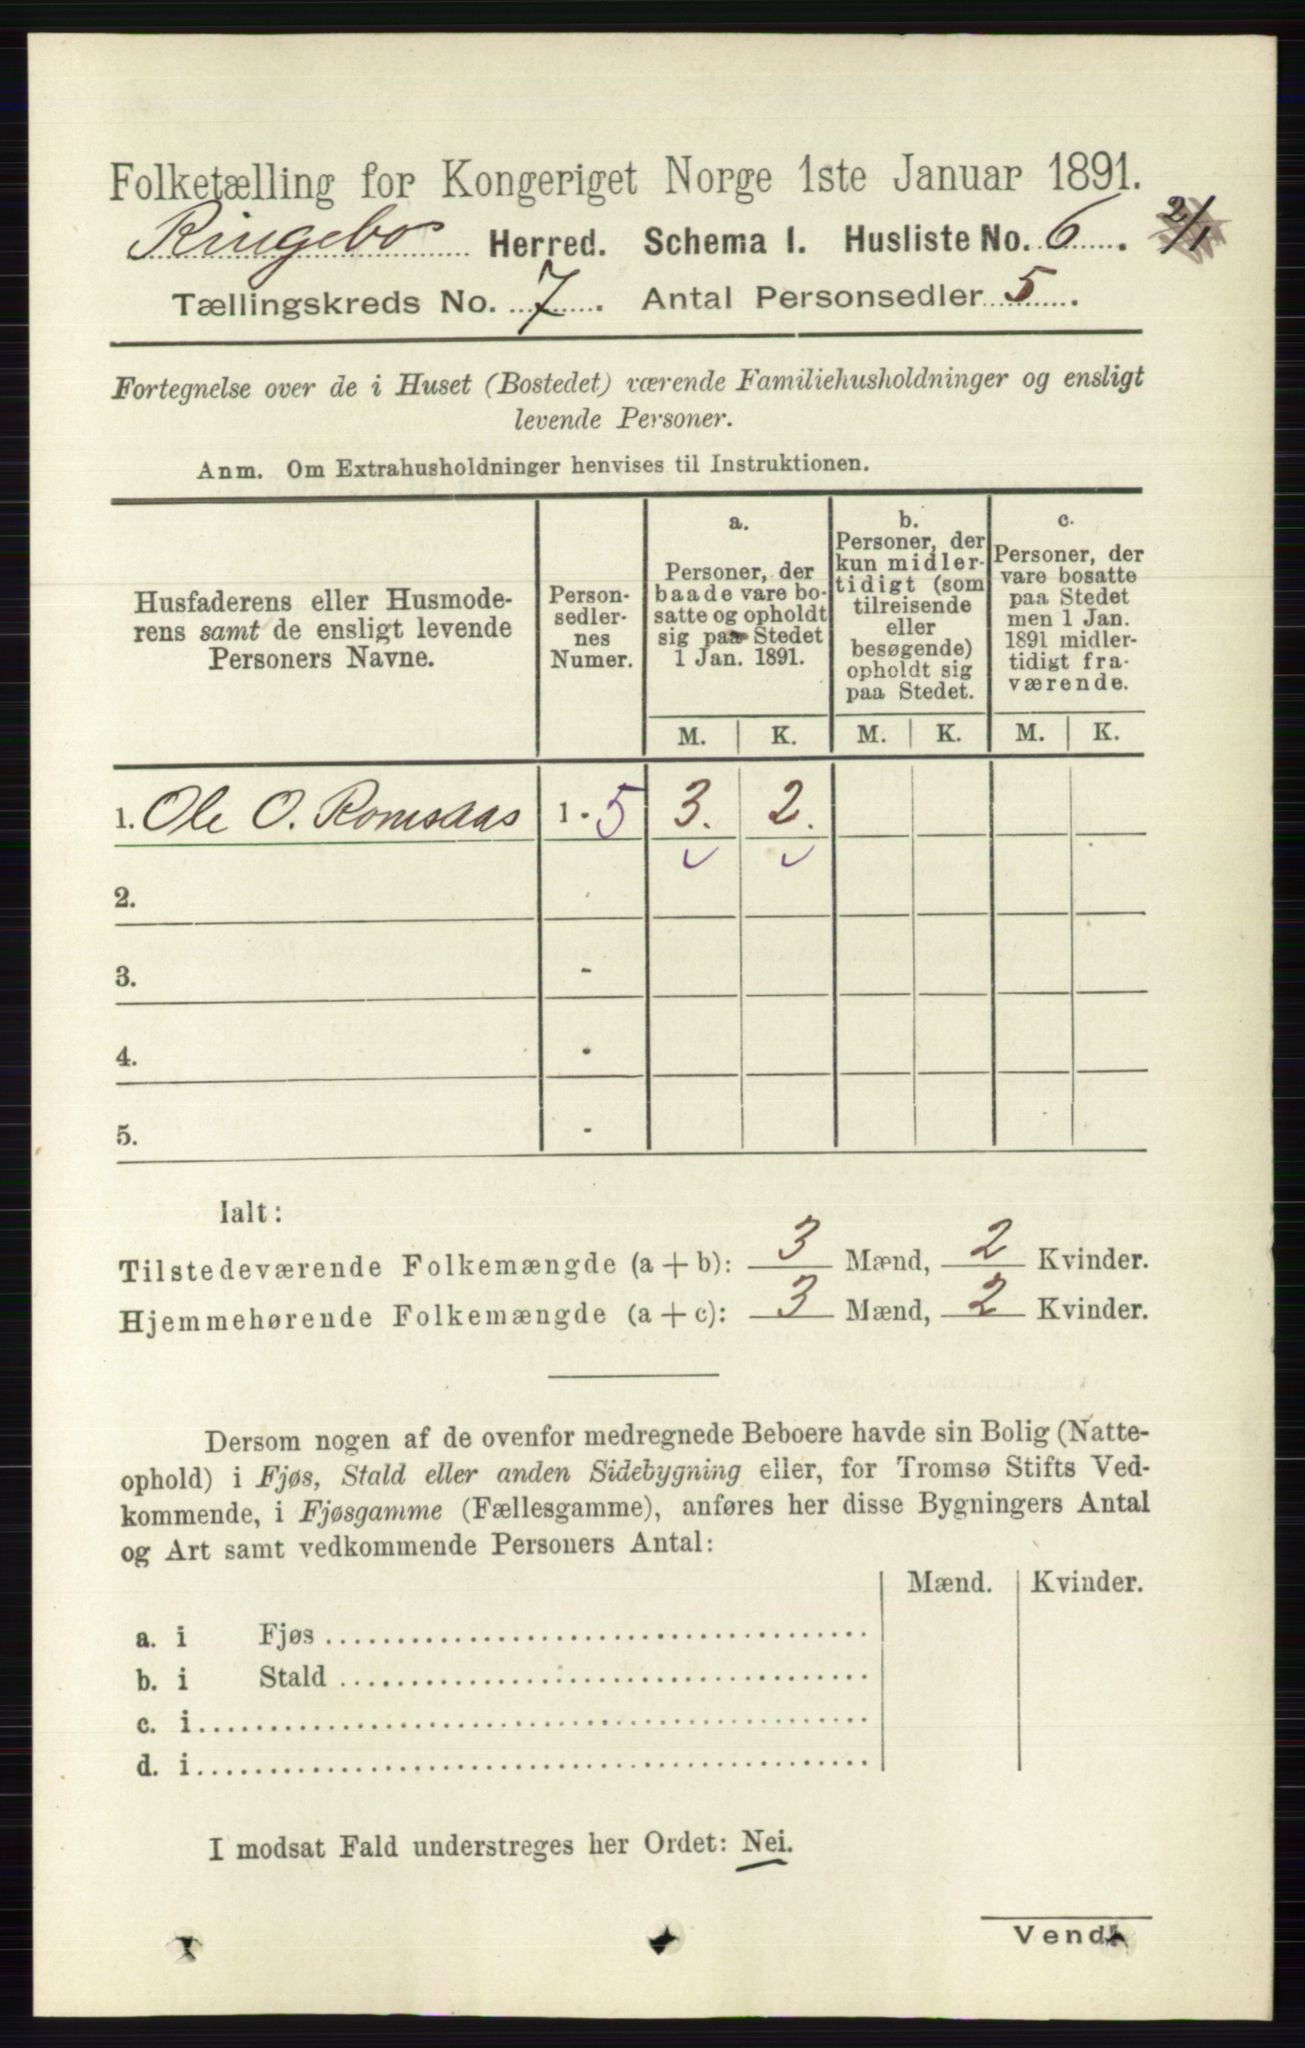 Folketælling for Kongeriget Norge 1ste Januar 1891.
Ringebo Herred. Schema I. Husliste No. 6. 2/1
Tællingskreds No. 7. Antal Personsedler 5.
Fortegnelse over de i Huset (Bostedet) værende Familiehusholdninger og ensligt
levende Personer.
Anm. Om Extrahusholdninger henvises til Instruktionen.
Husfaderens eller Husmode-
rens samt de ensligt levende
Personers Navne.
Person-
sedler-
nes
Numer.
a.
Personer, der
baade vare bo-
satte og opholdt
sig paa Stedet
1 Jan. 1891.
b.
Personer, der
kun midler-
tidigt (som
tilreisende
eller
besøgende)
opholdt sig
paa Stedet.
c.
Personer, der
vare bosatte
paa Stedet
men 1 Jan.
1891 midler-
tidigt fra-
værende.
M. K. M. K. M. K.
1. Ole O. Romsaas 1 - 5 3. 2.
2.
3. -
4. -
5. -
Ialt:
Tilstedeværende Folkemængde (a + b): 3 Mænd, 2 Kvinder.
Hjemmehørende Folkemængde (a + c): 3 Mænd, 2 Kvinder.
Dersom nogen af de ovenfor medregnede Beboere havde sin Bolig (Natte-
ophold) i Fjøs, Stald eller anden Sidebygning eller, for Tromsø Stifts Ved-
kommende, i Fjøsgamme (Fællesgamme), anføres her disse Bygningers Antal
og Art samt vedkommende Personers Antal:
Mænd. Kvinder.
a. i Fjøs
b. i Stald
c. i
d. i
I modsat Fald understreges her Ordet: Nei.
Vend!